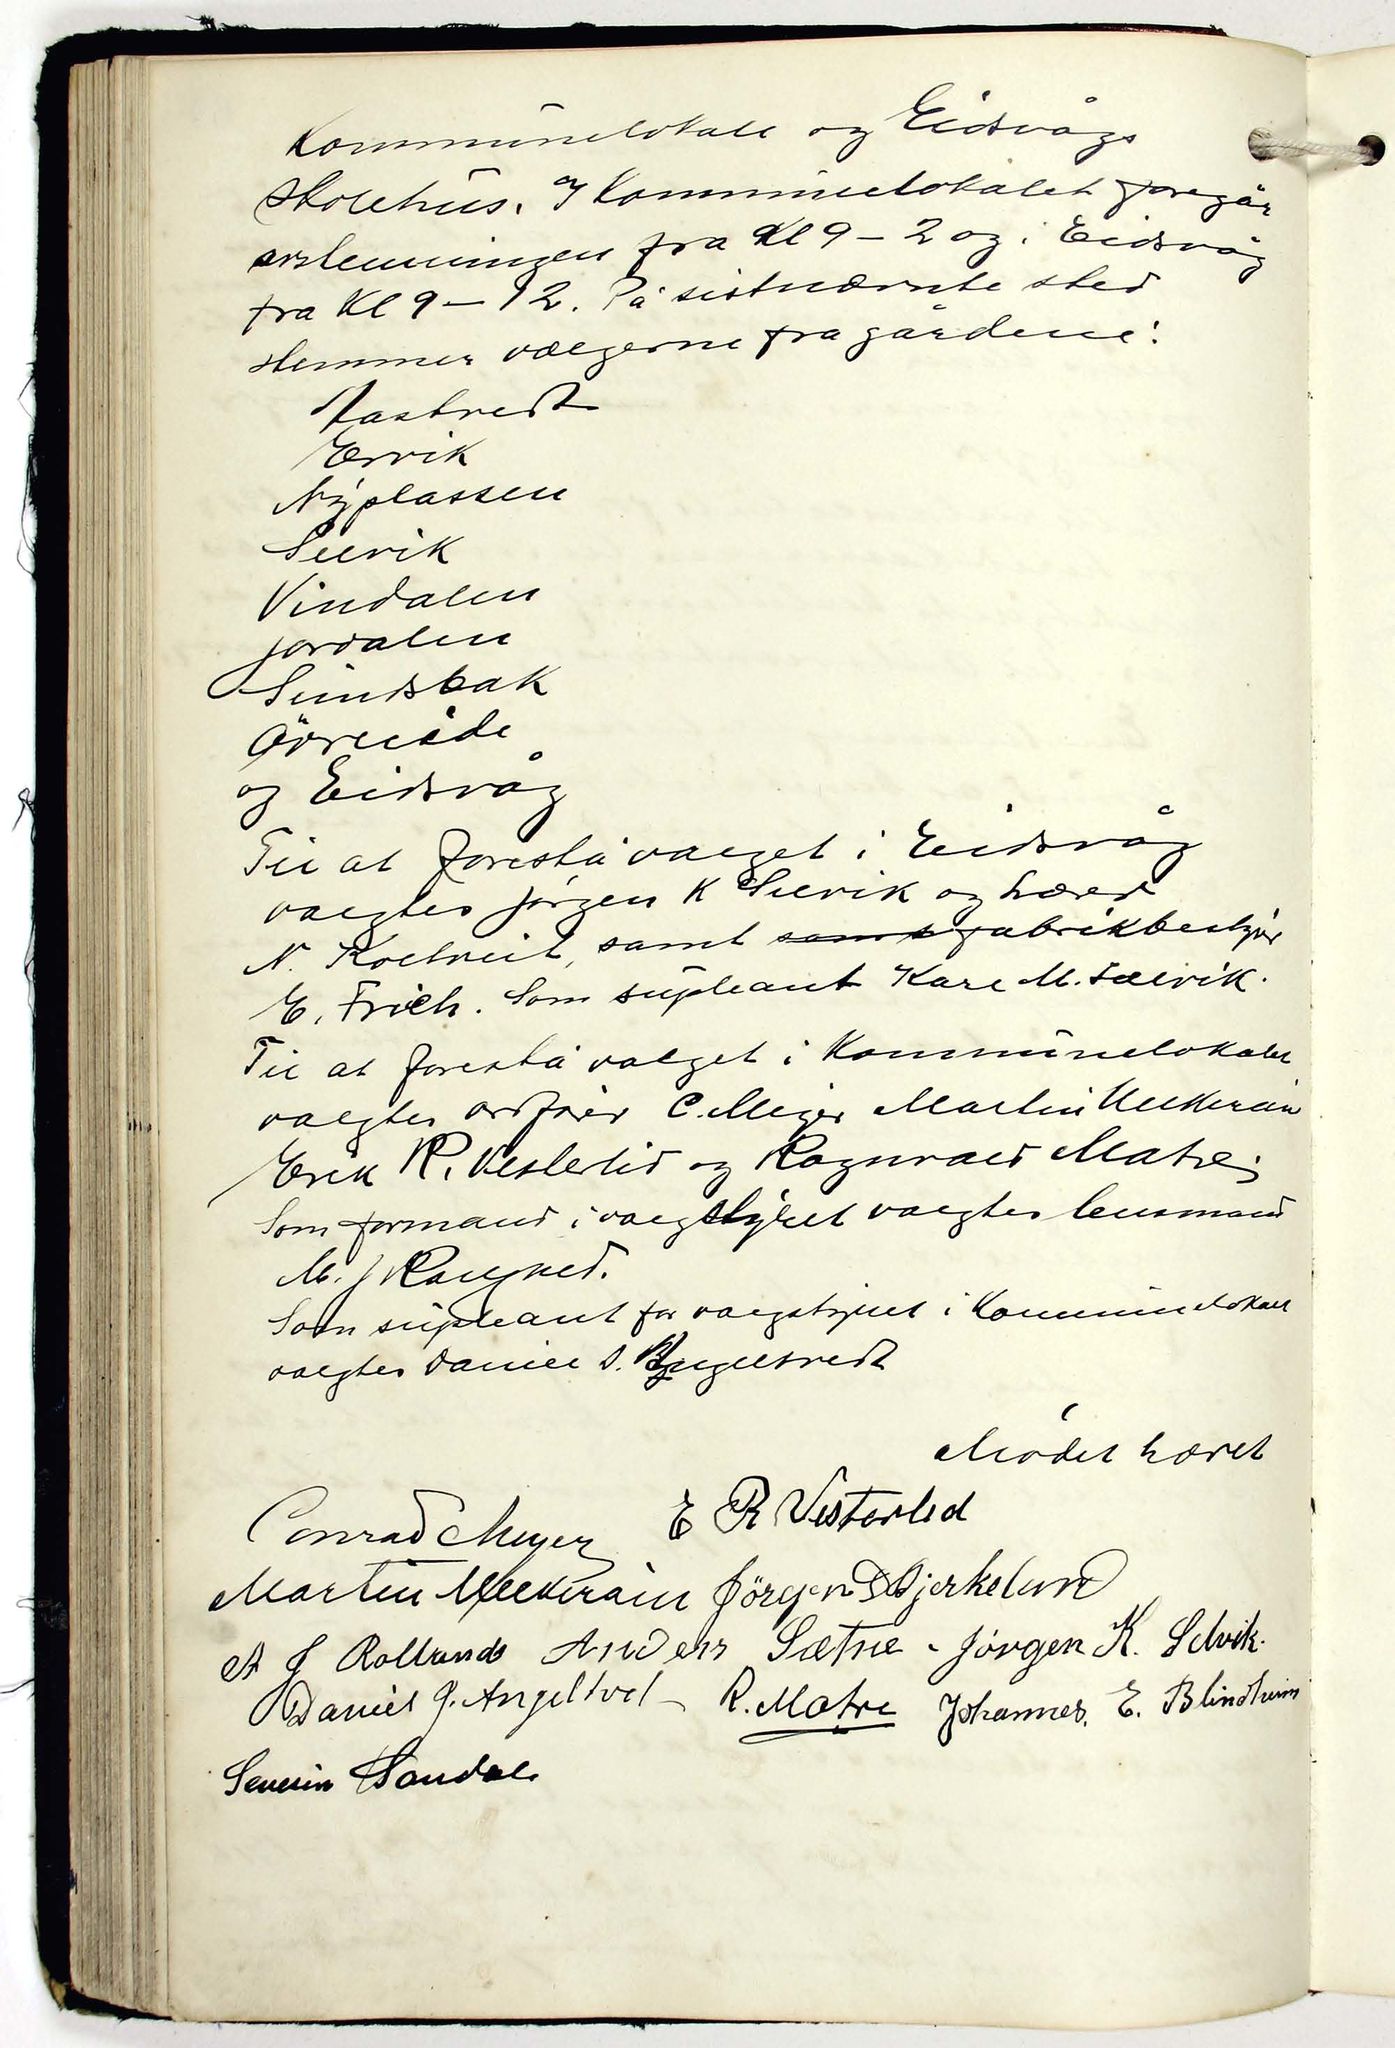 Kommunelokale og Eidsvågs
skolehus. I Kommunelokalet foregår
avstemningen fra Kl 9 - 2 og i Eidsvåg
fra Kl 9 - 12. På sistnævnte sted
stemmer vælgerne fra gårdene:
Hastvedt
Ervik
Nyplassen
Selvik
Vindalen
Jordalen
Sundsbak
Øvreåde
og Eidsvåg
Til at forestå valget i Eidsvåg
valgtes Jørgen K Selvik og lærer
N. Koltveit, samt samt fabrikbestyr
E. Frich. Som supleant Karl M. Sælvik.
Til at forestå valget i Kommunelokalet
valgtes ordfører C. Meyer Martin
Erik R. Vesterlid og Ragnvald Matre;
Som formand i valgstyret valgtes lensmand
M. J
Som supleant for valgstyret i Kommunelokalet
valgtes Daniel J. Angeltvedt
Mödet hævet
Conrad Meyer E R Vesterlid
Martin Jørgen Bjerkelund
A J Rolland Anders Sætre - Jørgen K. Selvik.
Daniel J. Angeltvet - R. Matre Johannes. E. Blindheim
Severin Haukås